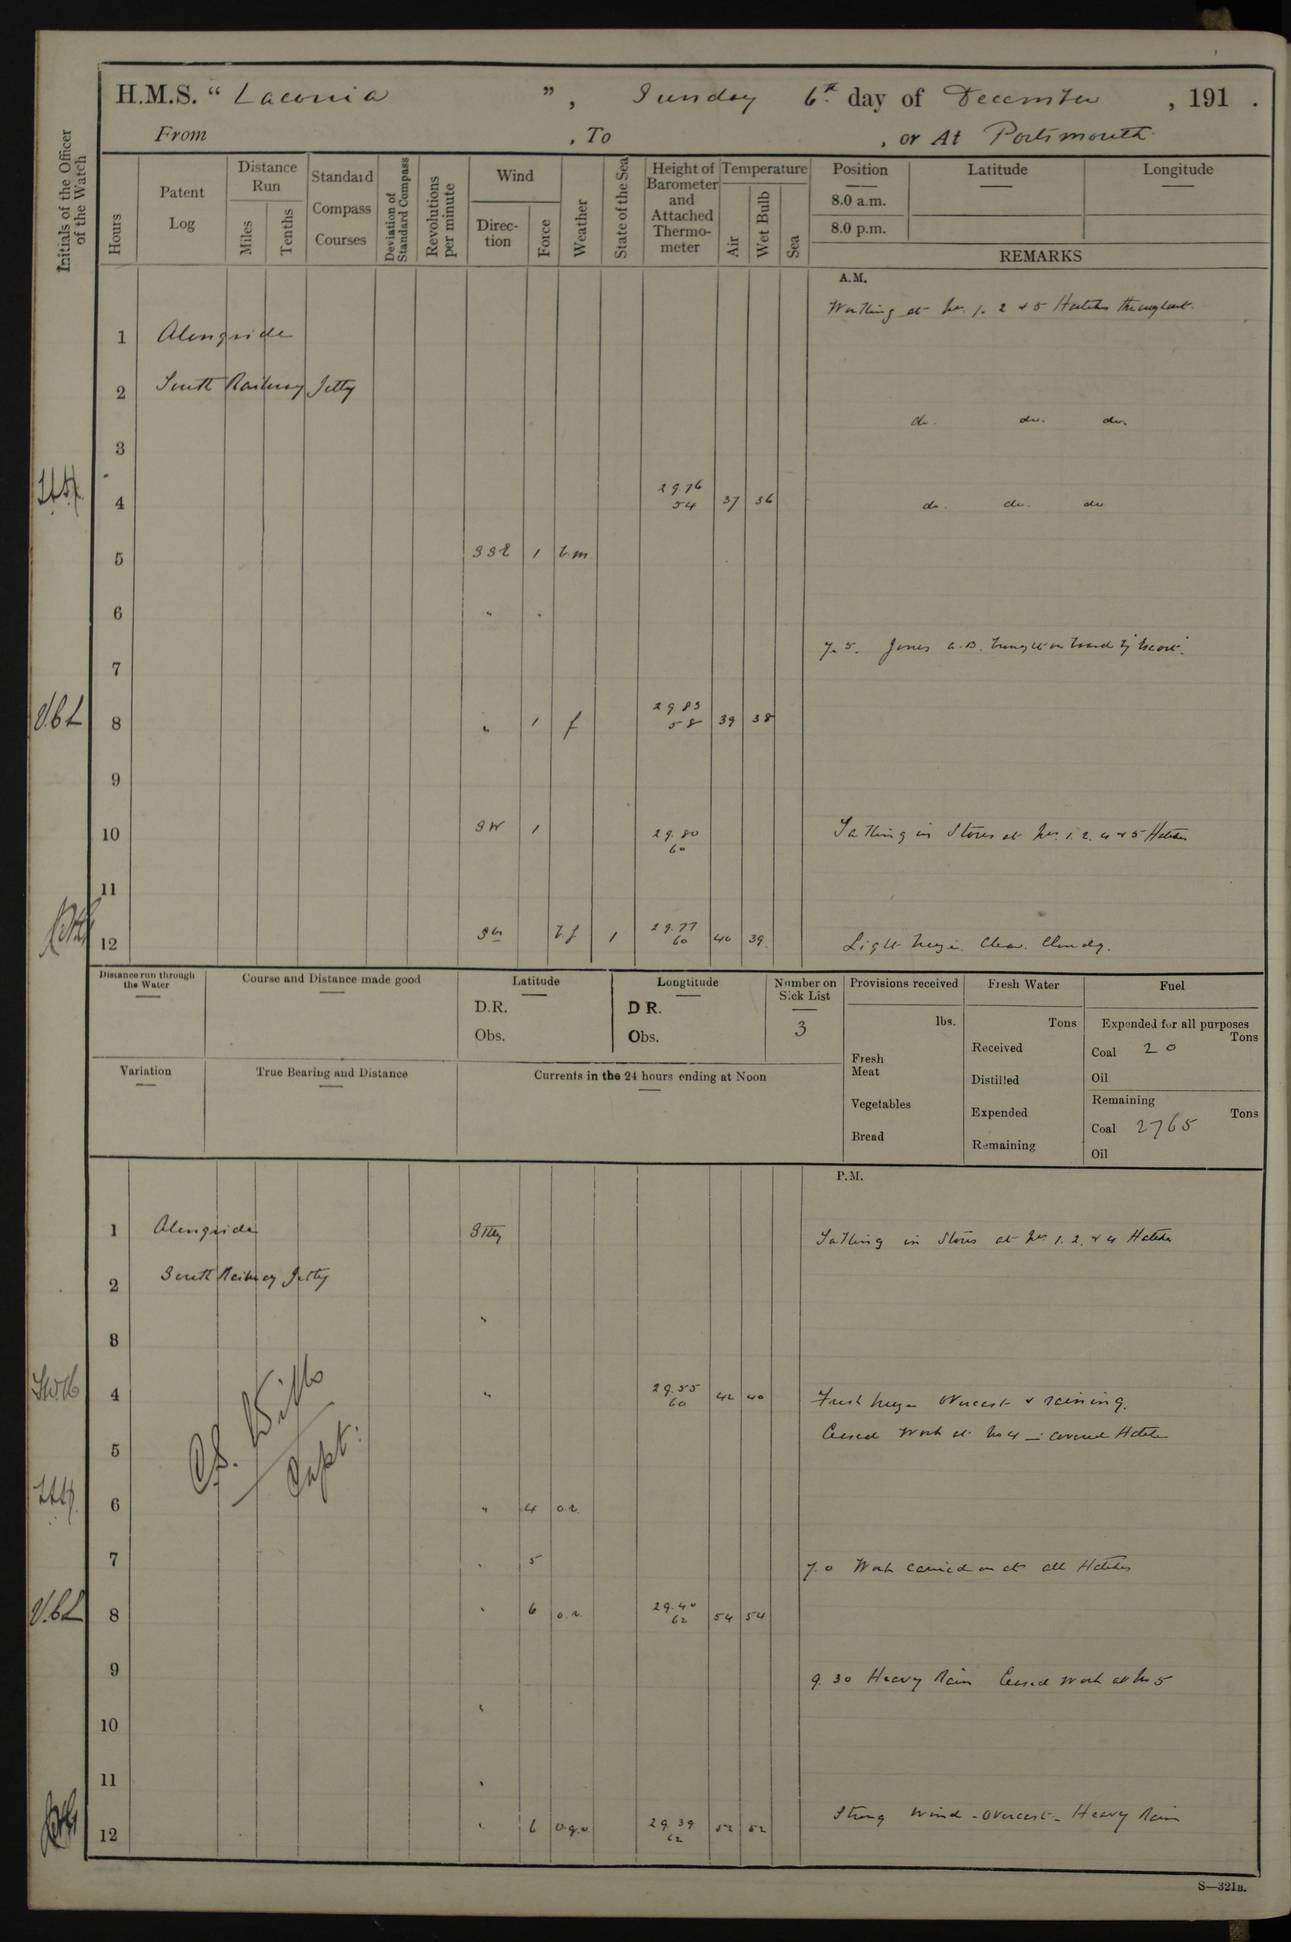 H.M.S. " Laconia ", Sunday 6th day of December, 191 .
From , To , or At Portsmouth
Initials of the Officer of the Watch
Hours
Patent Log
Distance Run
Miles
Tenths
Standard Compass Courses
Deviation of Standard Compass
Revolutions per minute
Wind
Direction
Force
Weather
State of the Sea
Height of Barometer and Attached Thermometer
Temperature
Air
Wet Bulb
Sea
Position
8.0 a.m.
8.0 p.m.
Latitude
Longitude
REMARKS
A.M.
Working at Nos. 1. 2 & 5 Hatches throughout.
1 Alongside
2 South Railway Jetty
do. do. do.
3
4 29.76 54 37 36 do. do. do
5 SSE 1 b.m.
6 " "
7. 5. Jones A.B. brought on board by escort.
7
V.B.L 8 " 1 f 29.83 58 39 38
9
10 SW 1 29.80 60 Taking in Stores at Nos. 1. 2. 4 & 5 Hatches
11
12 b.f 1 29.77 60 40 39 Light breeze. Clear. Cloudy.
Distance run through the Water
Course and Distance made good
Latitude
D.R.
Obs.
Longtitude
D R.
Obs.
Number on Sick List
3
Provisions received
lbs.
Fresh Meat
Vegetables
Bread
Fresh Water
Tons
Received
Distilled
Expended
Remaining
Fuel
Expended for all purposes
Tons
Coal 20
Oil
Remaining
Tons
Coal 2765
Oil
Variation
True Bearing and Distance
Currents in the 24 hours ending at Noon
P.M.
1 Alongside Taking in Stores at Nos 1. 2. & 4 Hatches
2 South Railway Jetty
"
3
4 " 29.55 60 42 40 Fresh breeze overcast & raining.
Ceased work at No 4 - covered Hatch
C.S. Wills
Capt.
5
6 " 4 o.r.
7 " 5 7.0 Work carried on at all Hatches
V.B.L 8 " 6 o.r. 29.40 62 54 54
9 9. 30 Heavy Rain Ceased work at No 5
10 "
11 "
12 " 6 29.39 62 52 52 Strong wind - overcast - Heavy Rain
S—321B.